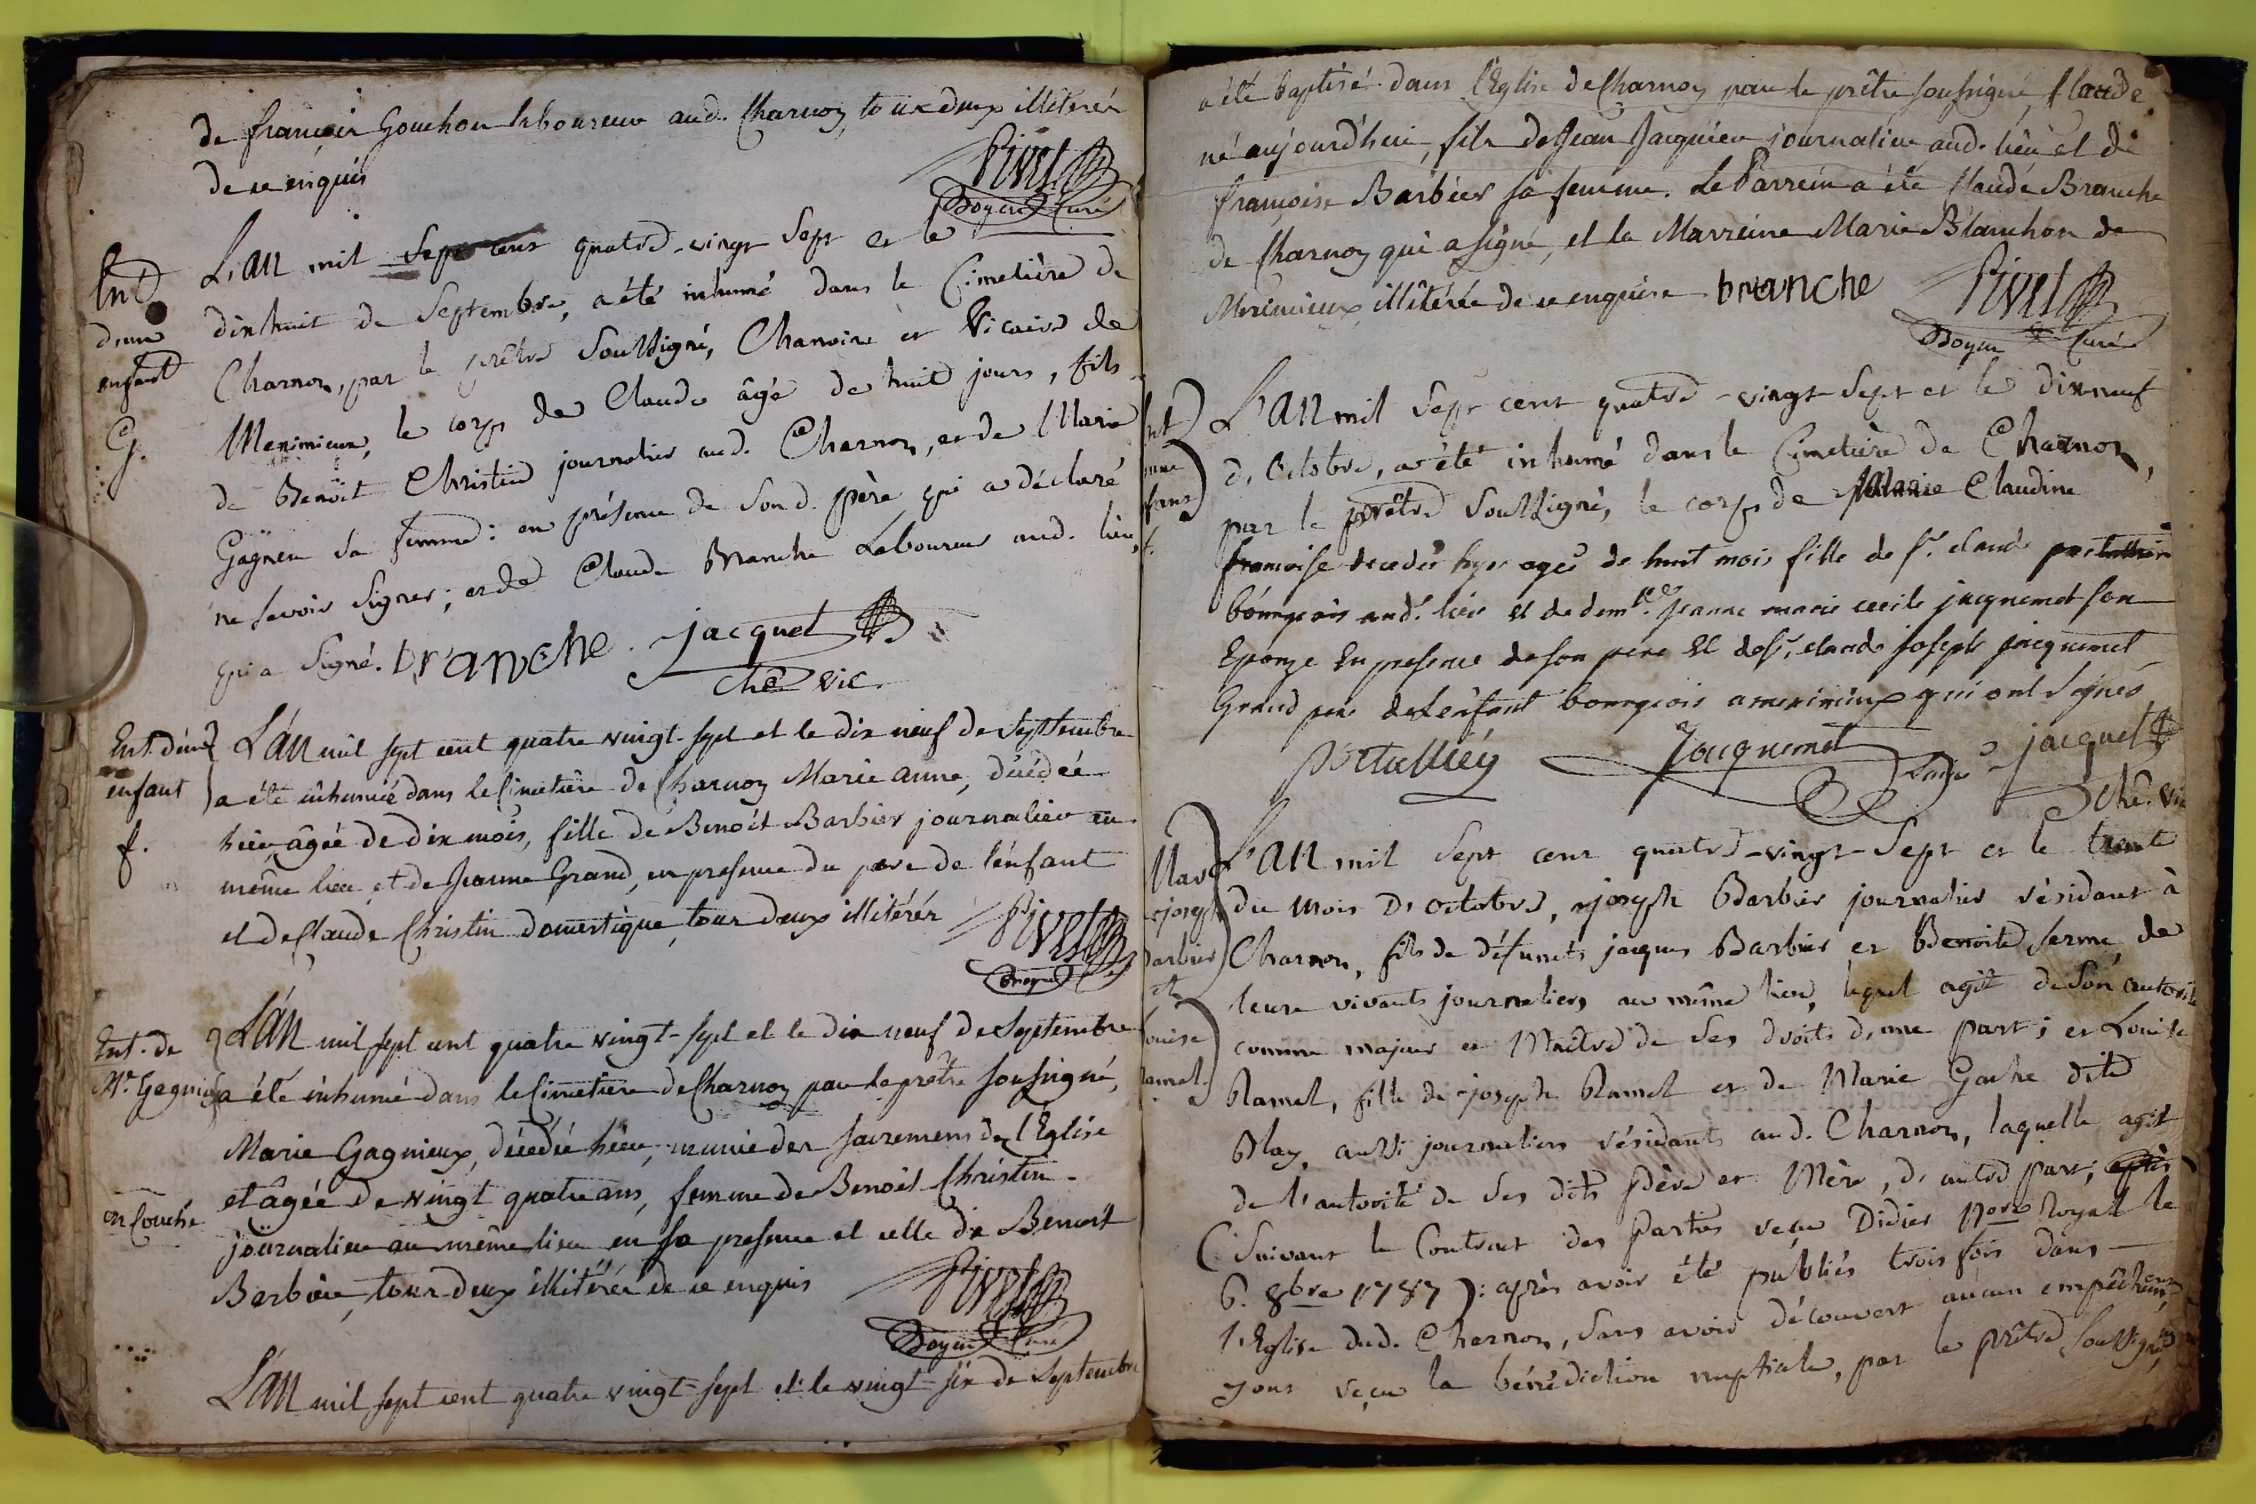 de françois Gouchon laboureur aud. Charnoz, tous deux illiterés
de ce enquis
Pivet
Doyen Curé
Ent.
d'une
enfant
G.
L'an mil sept cent quatre-vingt Sept et le
dixhuit de Septembre, a été inhumé dans le Cimetière de
Charnon, par le prêtre Soussigné, Chanoine et Vicaire de
Meximieux, le corps de Claude âgé de huit jours, fils
de Benoit Christin journalier aud. Charnon, et de Marie
Gagneu sa femme : en présence de Son d. père, qui a déclaré
ne Savoir Signer ; et de Claude Branche Laboureur aud. lieu,
qui a Signé. branche. jacquet
che vic.
Ent. d'une
enfant
f.
L'an mil sept cent quatre vingt-sept et le dix neuf de Septembre
a été inhumée dans le Cimetière de Charnoz Marie anne, décédée
hier âgée de dix mois, fille de Benoit Barbier journalier au
même lieu et de Jeanne Grand, en presence du pere de l'enfant
et de Claude Christin domestique, tous deux illitérés
Pivet
Doyen
Ent. de
Me. Gagnieux
en Couche
L'an mil sept cent quatre vingt-sept et le dix neuf de Septembre
a été inhumé dans le Cimetiere de Charnoz par le prêtre soussigné,
Marie Gagnieux, décédée hier, munie des sacremens de l'Eglise
et âgée de vingt quatre ans, femme de Benoit Christin
journalier au même lieu en sa presence et celle de Benoit
Barbier, tous deux illitérés de ce enquis
Pivet
Doyen Curé
L'an mil sept cent quatre vingt-sept et le vingt-six de Septembre
a été baptisé dans l'Eglise de Charnoz par le prêtre soussigné, Claude
né aujourd'hui, fils de Jean Jacquier journalier aud. lieu et de
françoise Barbier sa femme. Le Parrein a été Claude Branche
de Charnoz qui a signé, et la Marreine Marie Blanchon de
Meximieux, illitérée de ce enquise branche Pivet
Doyen Curé
L'an mil Sept cent quatre-vingt-Sept et le dixneuf
d'Octobre, a été inhumé dans le Cimetière de Charnon,
par le prêtre Soussigné, le corps de Marie Claudine
francoise decedée hyer agée de huit mois fille de sr. claude
bourgeois aud. lieu et de demlle. jeanne marie cecile jacquemet son
Epouze En presence de son pere Et de sr. claude joseph jacquemet
Grand pere de Lenfant bourgeois a meximieux qui ont signés
Jacquemet jacquet
che. vic
Mar.
joseph
Barbier
et
Louise
Ramel.
L'an mil Sept cent quatre-vingt-Sept et le trente
du mois D'octobre, joseph Barbier journalier résidant à
Charnon, fils de défunts jacques Barbier et Benoite ferme, de
leurs vivants journaliers au même lieu, lequel agit de Son autorité
comme majeur et Maître de Ses droits d'une part ; et Louise
Ramel, fille de joseph Ramel et de Marie Gache dite
Blay, aussi journaliers résidants aud. Charnon, laquelle agit
de l'autorité de Ses dits Père et Mère, d'autre part ;
(Suivant le Contract des Parties reçu Didier Nore Royal le
6. 8bre 1787) : après avoir été publiés trois fois dans
l'Eglise dud. Charnon, Sans avoir découvert aucun empêchemt,
ont reçu la bénédiction nuptiale, par le prêtre Soussigné